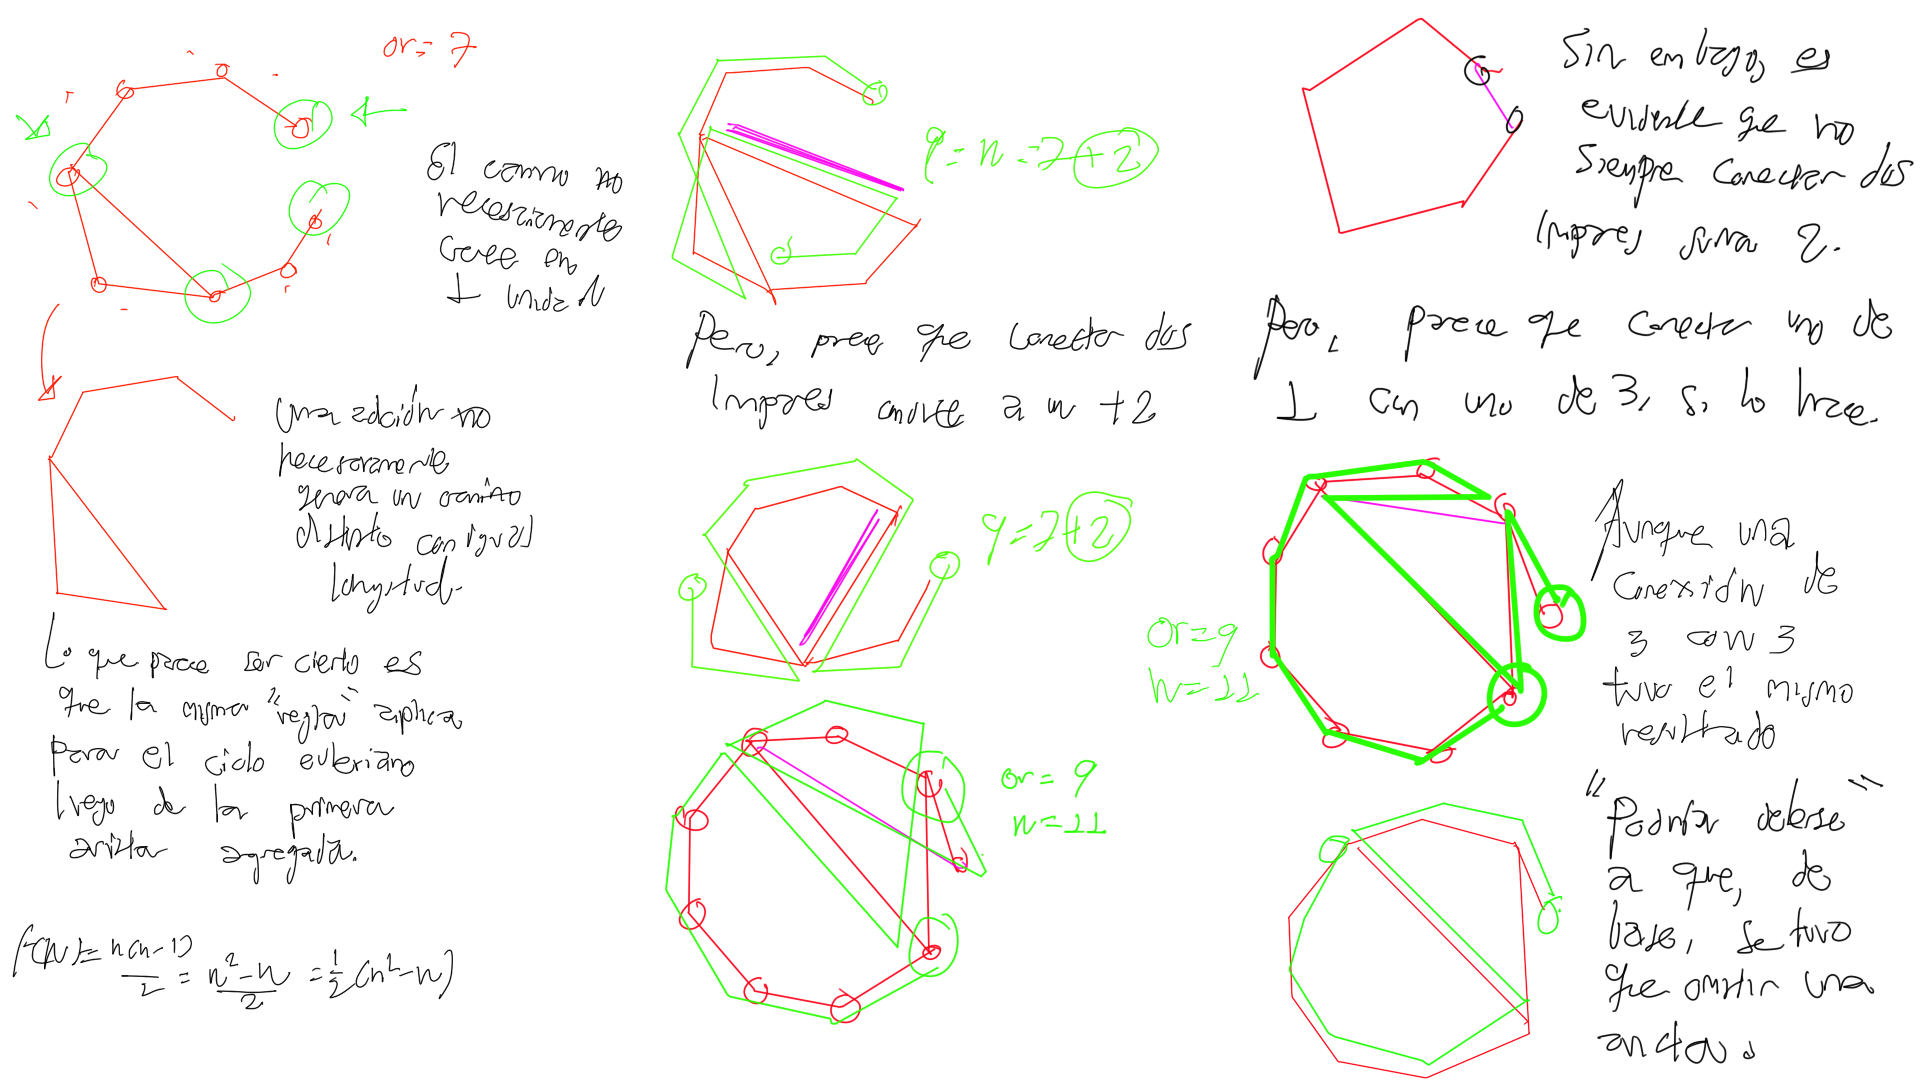 or = 7
El camino no
necesariamente
crece en
1 unidad
Una adición no
necesariamente
genera un camino
distinto con igual
longitud.
Lo que parece ser cierto es
que la misma "regla" aplica
para el ciclo euleriano
luego de la primera
arista agregada.
f(n) = n(n-1)/2 = n²-n/2 = 1/2(n²-n)
9 = n = 7+2
Pero, parece que conectar dos
impares a n +2
9 = 7+2
or = 9
n = 11
Sin embargo, es
evidente que no
siempre conectar dos
impares suma 2.
Pero, parece que conectar uno de
1 con uno de 3, si lo hace.
or = 9
n = 11
Aunque una
conexión de
3 con 3
tuvo el mismo
resultado
"Podría deberse"
a que, de
base, se tuvo
que omitir una